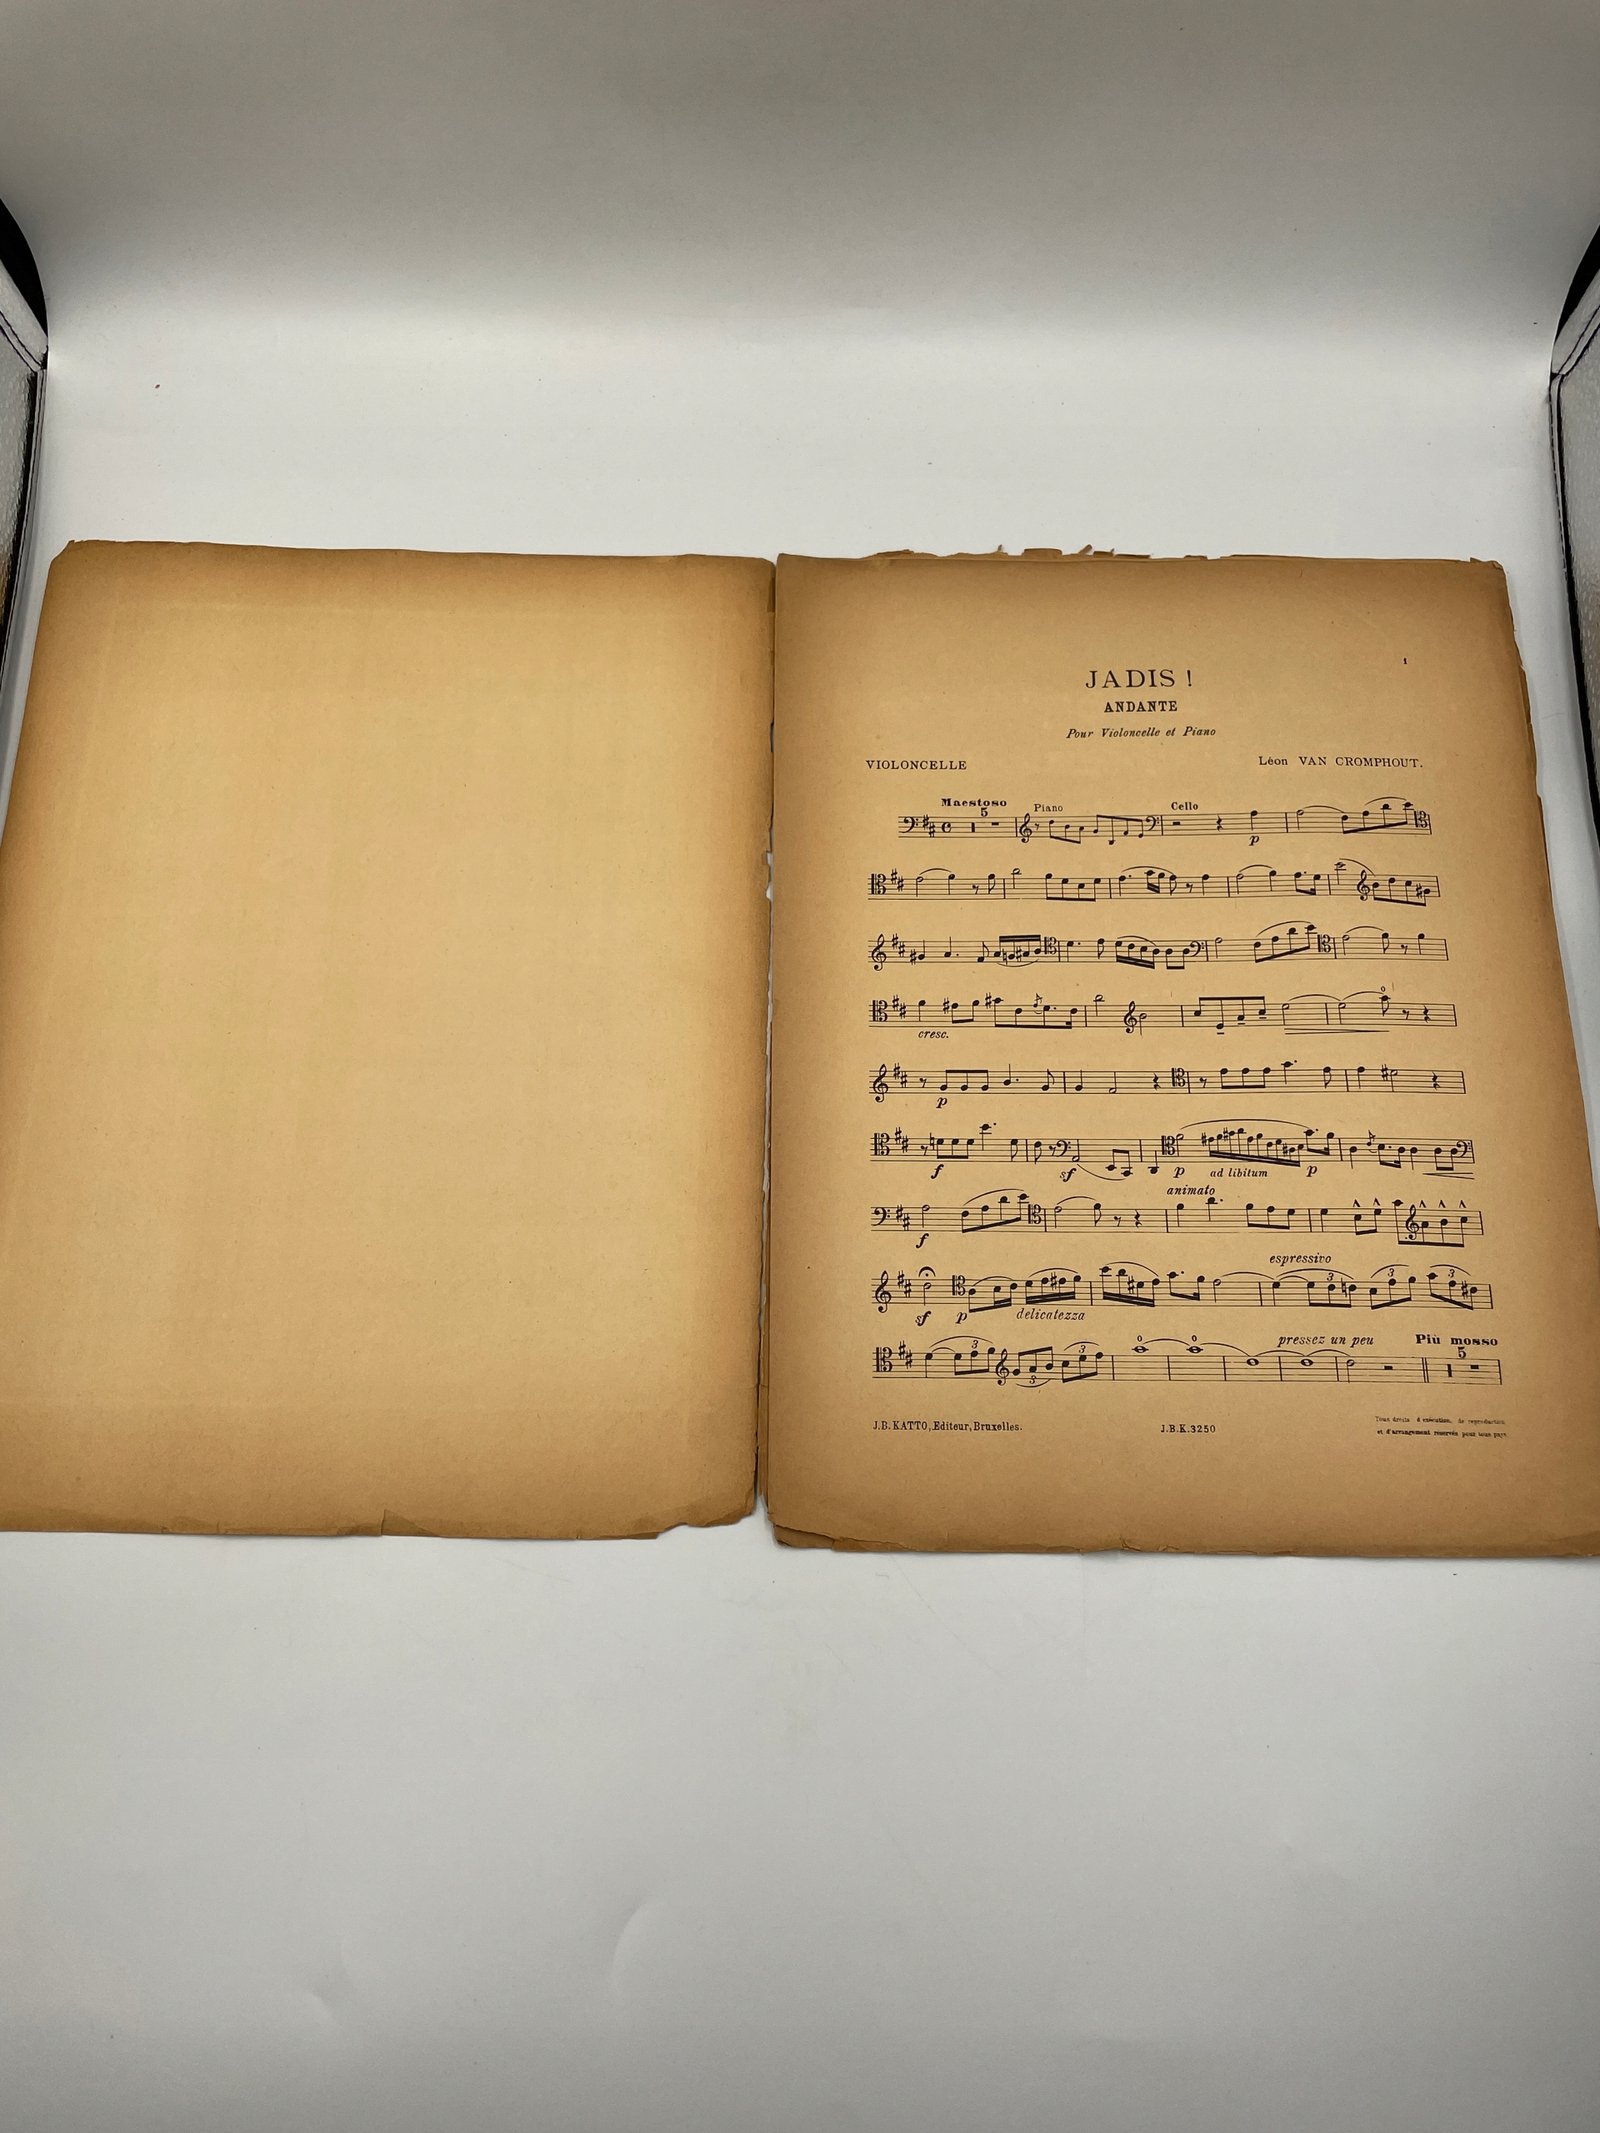 1
JADIS !
ANDANTE
Pour Violoncelle et Piano
VIOLONCELLE
Léon VAN CROMPHOUT.
Maestoso
5
Piano
Cello
p
cresc.
p
f
sf
p
ad libitum
p
animato
f
espressivo
sf
p
delicatezza
3
3
3
pressez un peu
Più mosso
3
3
3
5
J.B. KATTO, Editeur, Bruxelles.
J.B.K.3250
Tous droits d'exécution, de reproduction
et d'arrangement réservés pour tous pays